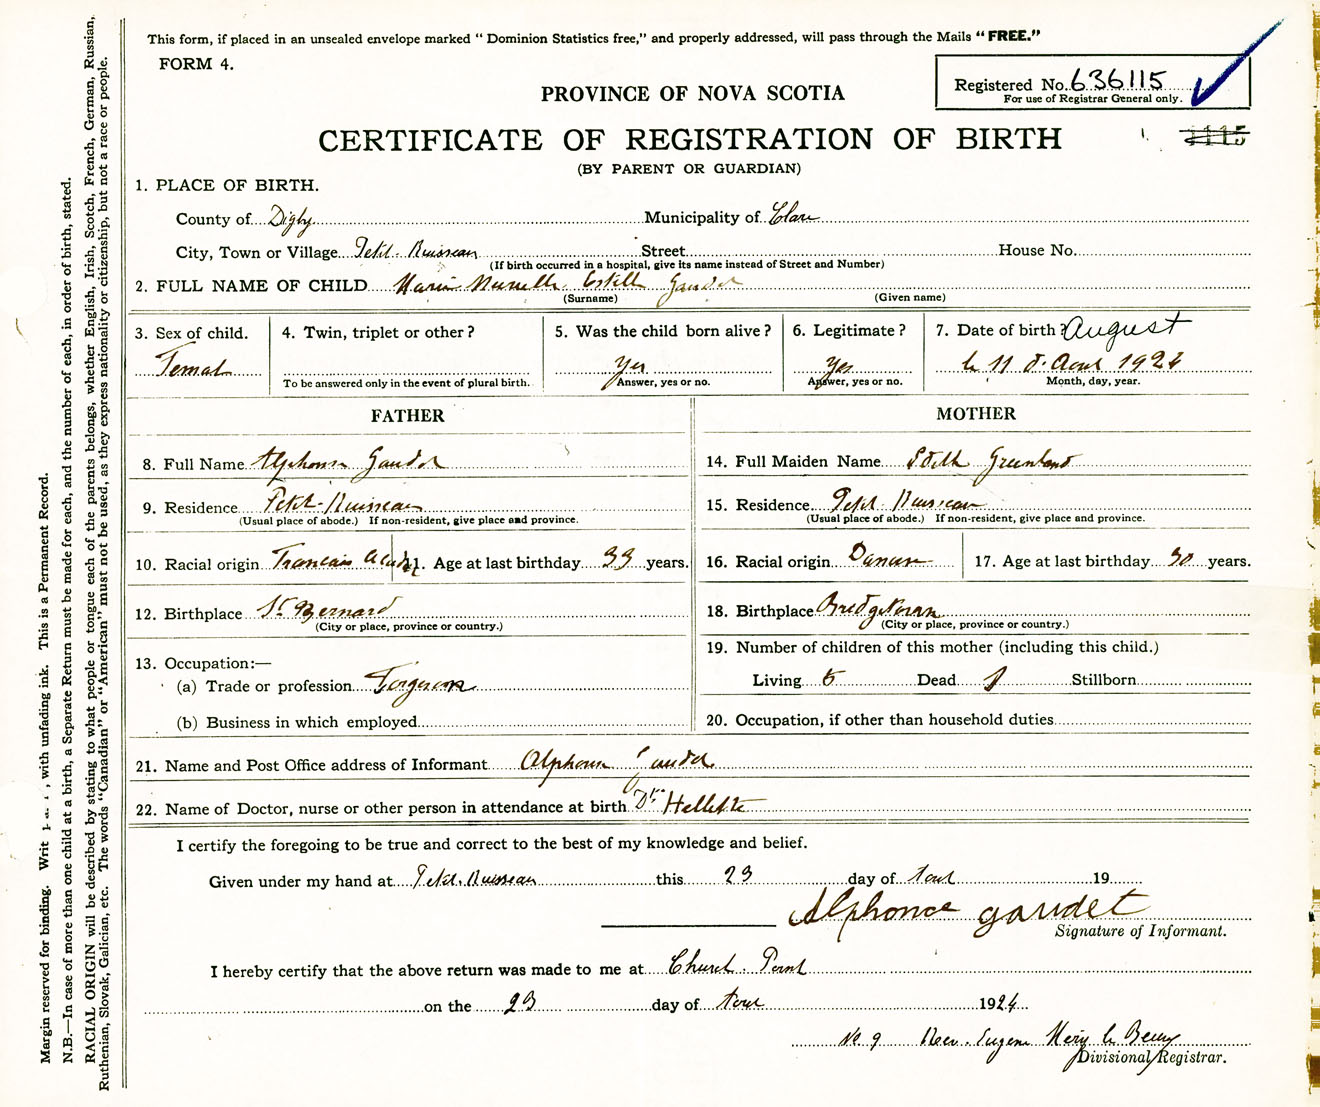 This form, if placed in an unsealed envelope marked "Dominion Statistics free," and properly addressed, will pass through the Mails "FREE."
FORM 4.
Registered No. 636115
For use of Registrar General only.
PROVINCE OF NOVA SCOTIA
CERTIFICATE OF REGISTRATION OF BIRTH
1115
(BY PARENT OR GUARDIAN)
1. PLACE OF BIRTH.
County of Digby Municipality of Clare
City, Town or Village Petit-Ruisseau Street House No.
(If birth occurred in a hospital, give its name instead of Street and Number)
2. FULL NAME OF CHILD Marie Estelle Gaudet
(Surname) (Given name)
3. Sex of child. 4. Twin, triplet or other? 5. Was the child born alive? 6. Legitimate? 7. Date of birth? August
Femal Yes Yes le 11 d'Aout 1924
To be answered only in the event of plural birth. Answer, yes or no. Answer, yes or no. Month, day, year.
FATHER MOTHER
8. Full Name Alphonse Gaudet 14. Full Maiden Name Edith Greenland
9. Residence Petit-Ruisseau 15. Residence Petit-Ruisseau
(Usual place of abode.) If non-resident, give place and province. (Usual place of abode.) If non-resident, give place and province.
10. Racial origin Francais 11. Age at last birthday 33 years. 16. Racial origin 17. Age at last birthday 30 years.
12. Birthplace St Bernard 18. Birthplace
(City or place, province or country.) (City or place, province or country.)
13. Occupation:— 19. Number of children of this mother (including this child.)
(a) Trade or profession Forgeron Living 5 Dead 1 Stillborn
(b) Business in which employed 20. Occupation, if other than household duties
21. Name and Post Office address of Informant Alphonse Gaudet
22. Name of Doctor, nurse or other person in attendance at birth Dr.
I certify the foregoing to be true and correct to the best of my knowledge and belief.
Given under my hand at Petit-Ruisseau this 23 day of Aout 19
Alphonce gaudet
Signature of Informant.
I hereby certify that the above return was made to me at Church Point
on the 23 day of Aout 1924
No 9 Eugene
Divisional Registrar.
Margin reserved for binding. Writ , with unfading ink. This is a Permanent Record.
N.B.—In case of more than one child at a birth, a Separate Return must be made for each, and the number of each, in order of birth, stated.
RACIAL ORIGIN will be described by stating to what people or tongue each of the parents belongs, whether English, Irish, Scotch, French, German, Russian,
Ruthenian, Slovak, Galician, etc. The words "Canadian" or "American" must not be used, as they express nationality or citizenship, but not a race or people.